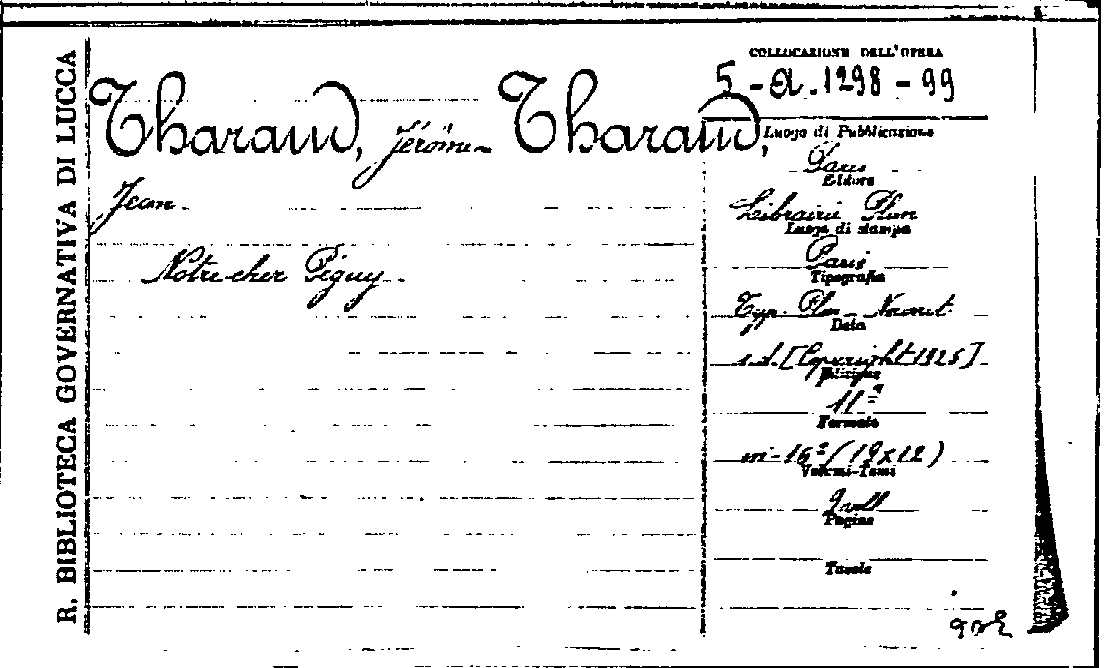 R. BIBLIOTECA GOVERNATIVA DI LUCCA
Tharaud, Jérôme - Tharaud,
Jean.
Notre cher Péguy.
COLLOCAZIONE DELL'OPERA
5 - a. 1298 - 99
Luogo di Pubblicazione
Paris
Editore
Librairie Plon
Luogo di stampa
Paris
Tipografia
Typ. Plon-Nourrit
Data
s.d. [Copyright 1925]
Edizione
11ª
Formato
in-16° (19x12)
Volumi-Tomi
2 voll
Pagine
Tavole